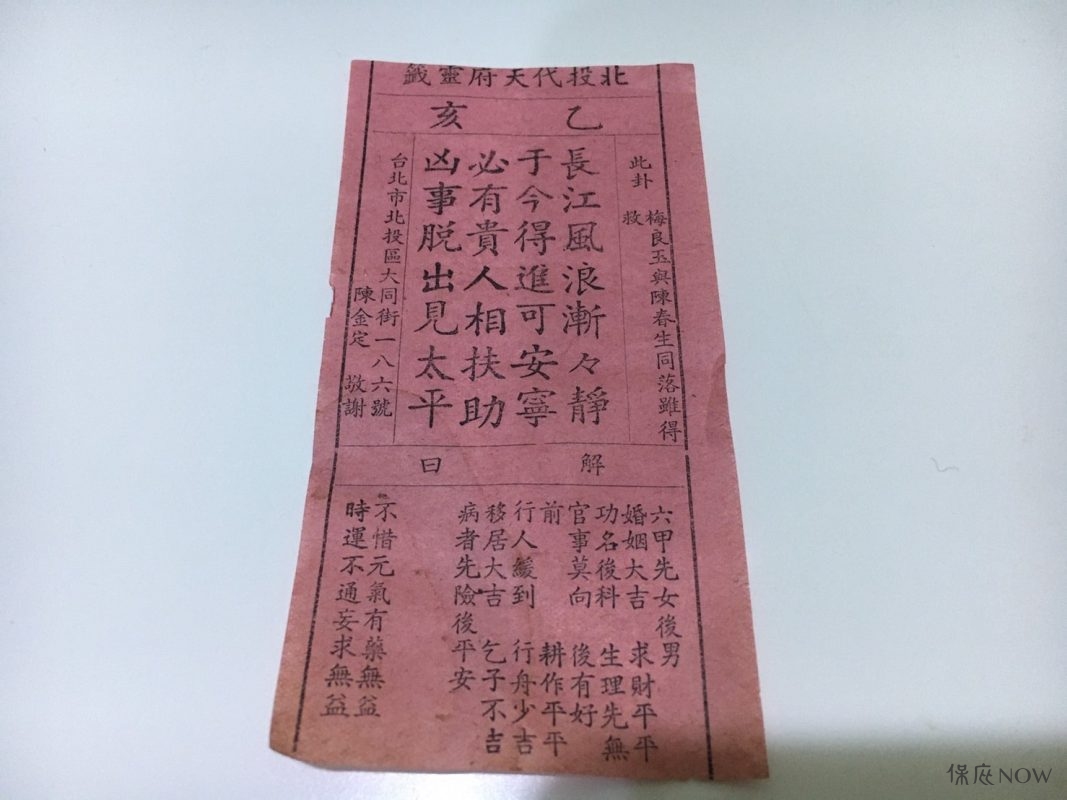 北投代天府靈籤
乙亥
此卦 梅良玉與陳春生同落雖得
救
長江風浪漸々靜
于今得進可安寧
必有貴人相扶助
凶事脱出見太平
台北市北投區大同街一八六號
陳金定 敬謝
解曰
六甲先女後男
婚姻大吉 求財平平
功名後科 生理先無
官事莫向 後有好
前 耕作平平
行人緩到 行舟少吉
移居大吉 乞子不吉
病者先險後平安
不惜元氣有藥無益
時運不通妄求無益
保庇NOW